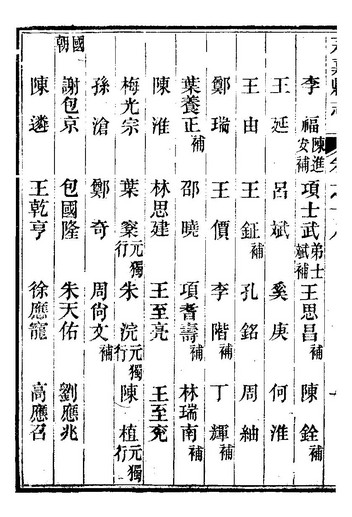 李福陳進安補 項士武弟士斌補 王思昌補 陳銓補
王延 呂斌 奚庚 何淮
王由 王鉦補 孔銘 周紬
鄭瑞 王價 李階補 丁輝補
葉養正補 邵曉 項耆壽補 林瑞南補
陳淮 林思建 王至亮 王至兖
梅光宗 葉窾元獨行 朱浣元獨行 陳植元獨行
孫滄 鄭奇 周尙文補
國朝
謝包京 包國隆 朱天佑 劉應兆
陳遴 王乾亨 徐應寵 高應召